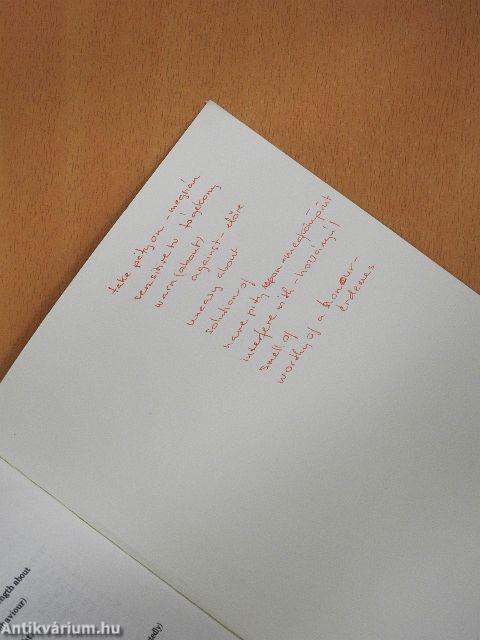 take pity on - meghán
sensitive to tógékony
warn (about)
against - előre
uneasy about
solution of
have pity upon = megkönyörül
interfere with - hozzányúl
smell of
worthy of a honour -
érdemes
ength about
aviour)
tedly)
Antikvárium.hu